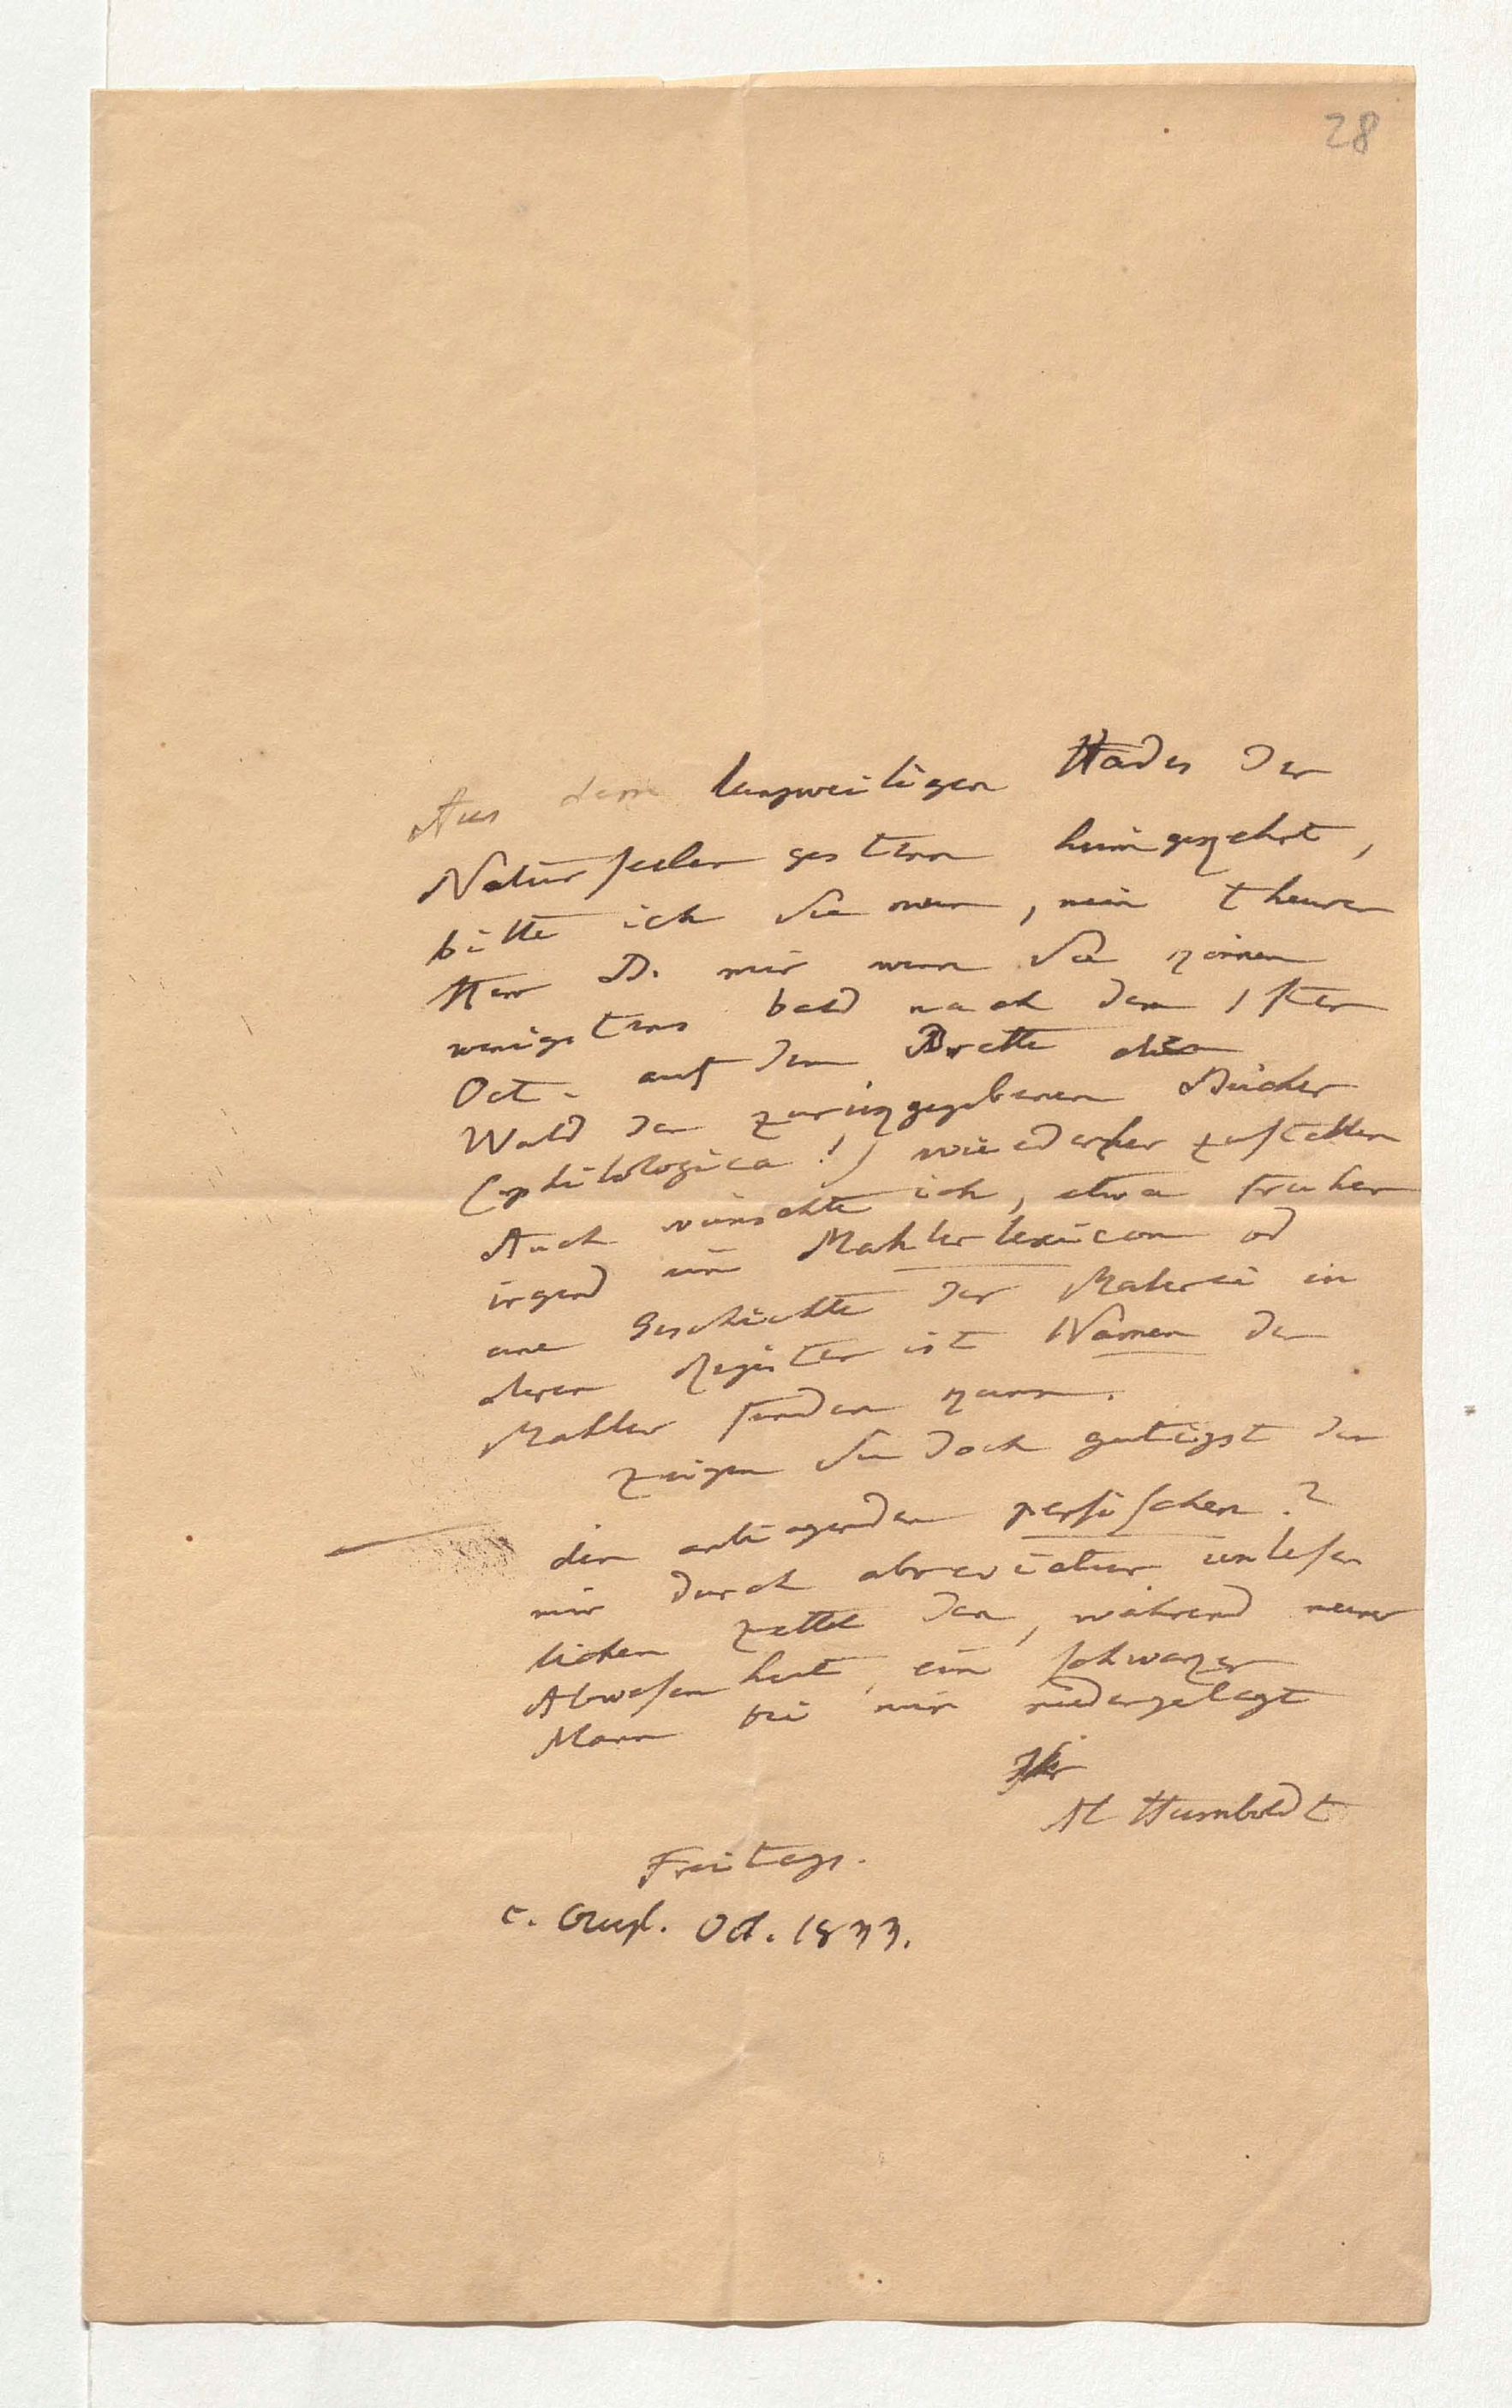 28
Aus dem langweiligen Hades der
Naturseelen gestern heimgekehrt,
bitte ich Sie nun, mein theurer
Herr D. mir wenn Sie können
wenigstens bald nach dem 1sten
Oct. auf dem Brette den
Wald der zurükgegebenen Bücher
(philologica!) wiederherzustellen
Auch wünschte ich, etwa früher
irgend ein Mahlerlexicon od
eine Geschichte der Malerei in
deren Register ist Namen der
Mahler finden kann.
Zeigen Sie doch gütigst den
den anliegenden persischen?
mir durch abreviatur unleser
lichen Zettel den, während meiner
Abwesenheit, ein schwarzer
Mann bei mir niedergelegt
Ihr
Al Humboldt
Freitags.
c. Oct. 1833.